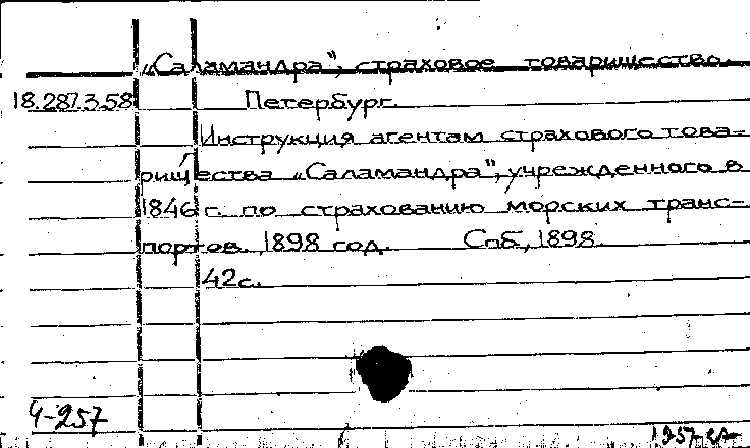 „Саламандра", страховое товарищество.
18.287.3.58 Петербург.
Инструкция агентам страхового това-
рищества „Саламандра", учрежденного в
1846 г. по страхованию морских транс-
портов. 1898 год. Спб., 1898.
42 с.
4-257